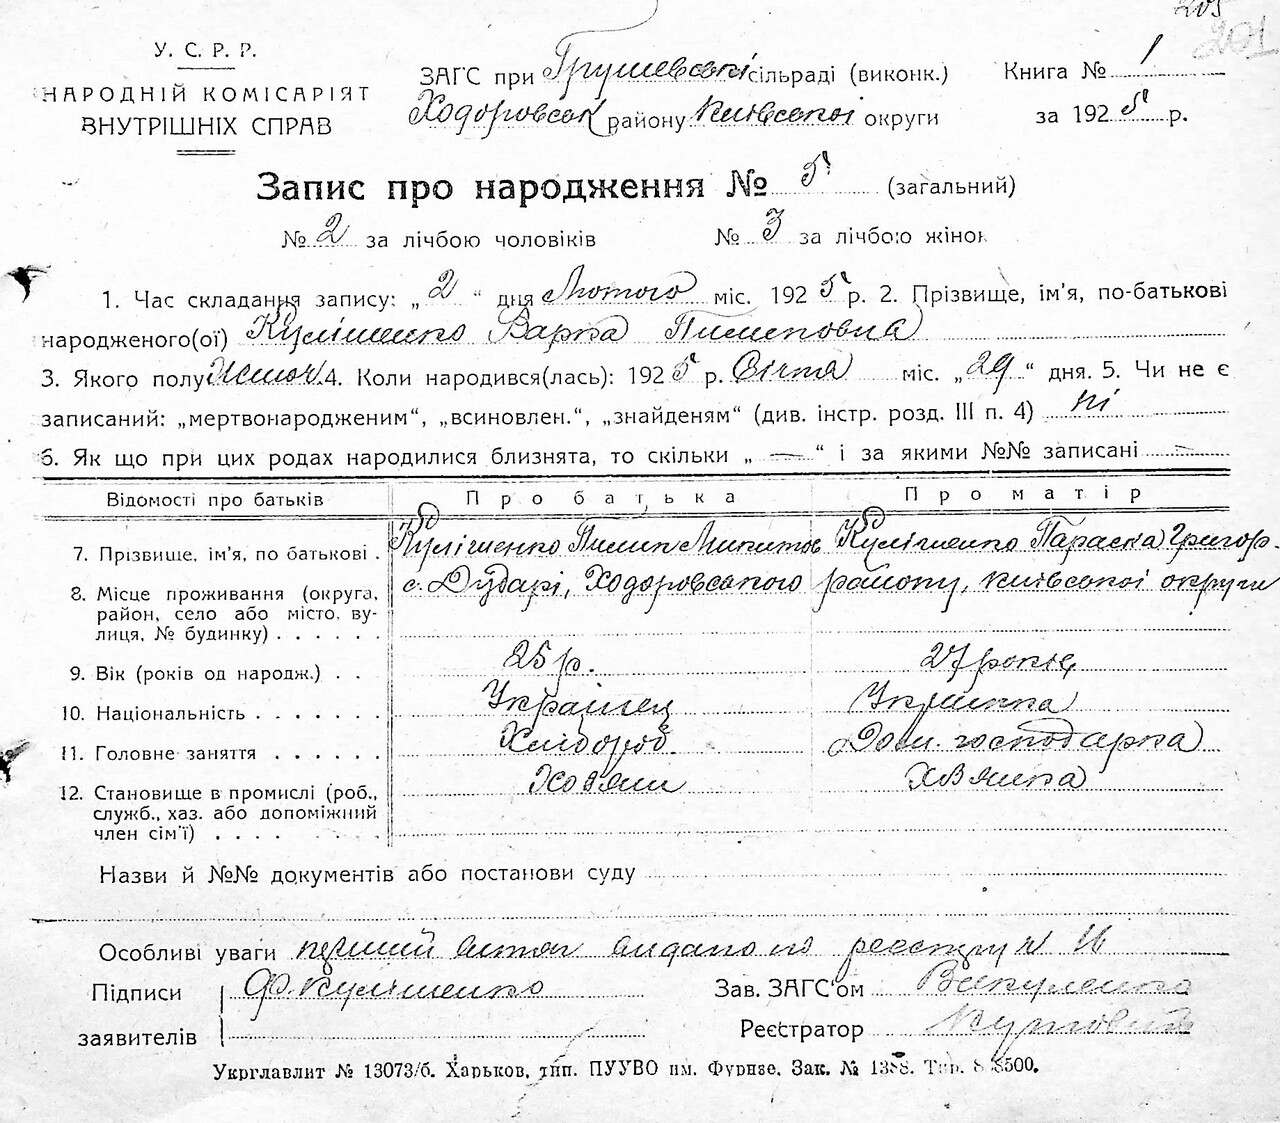 201
У. С. Р. Р.
НАРОДНІЙ КОМІСАРІЯТ
ВНУТРІШНІХ СПРАВ
ЗАГС при Грушевській сільраді (виконк.)
Ходоровськ району Київської округи
Книга № 1
за 1925 р.
Запис про народження № 5 (загальний)
№ 2 за лічбою чоловіків № 3 за лічбою жінок
1. Час складання запису: „2" дня Лютого міс. 1925 р. 2. Прізвище, ім'я, по-батькові
народженого(ої) Кулішенко Варка Пилиповна
3. Якого полу Жіноч. 4. Коли народився(лась): 1925 р. Січня міс. „29" дня. 5. Чи не є
записаний: „мертвонародженим", „всиновлен.", „знайденям" (див. інстр. розд. III п. 4) ні
6. Як що при цих родах народилися близнята, то скільки „ — " і за якими №№ записані —
Відомості про батьків Про батька Про матір
7. Прізвище, ім'я, по батькові . Кулішенко Пилип Микитов Кулішенко Параска Григор.
8. Місце проживання (округа, с. Дударі, Ходоровського району, Київської округи
район, село або місто, ву-
лиця, № будинку) . . . . . .
9. Вік (років од народж.) . . 25 р. 27 років
10. Національність . . . . . . . Українец Українка
11. Головне заняття . . . . . . Хлібороб. Дом. господарка
12. Становище в промислі (роб., Хозяин Хозяика
служб., хаз. або допоміжний
член сім'ї) . . . .
Назви й №№ документів або постанови суду
Особливі уваги перший витяг видано по реєстру №
Підписи Ф. Кулішенко Зав. ЗАГС'ом Вакуленко
заявителів Реєстратор
Укрглавлит № 13073/б. Харьков, тип. ПУУВО им. Фрунзе. Зак. № 1388. Тир. 88500.